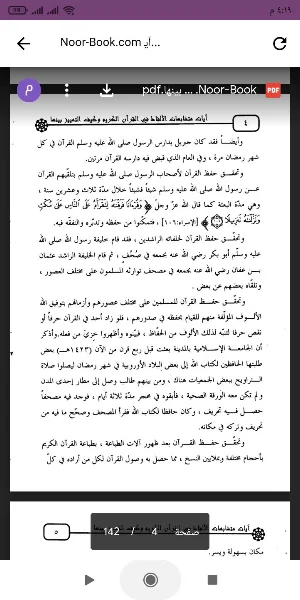 ٤:١٩ م
Noor-Book.com آي...
Noor-Book. ... بينها.pdf
PDF
آيات متشابهات الألفاظ في القرآن الكريم وكيف التمييز بينها
٤
وأيضاً فقد كان جبريل يدارس الرسول صلى الله عليه وسلم القرآن في كل
شهر رمضان مرة ، وفي العام الذي قبض فيه دارسه القرآن مرتين.
وتحقق حفظ القرآن لأصحاب الرسول صلى الله عليه وسلم بتلقيهم القرآن
عن رسول الله صلى الله عليه وسلم شيئاً فشيئاً خلال مدة ثلاث وعشرين سنة ،
وهي مدة البعثة كما قال الله عز وجل ﴿ وَقُرْآنًا فَرَقْنَاهُ لِتَقْرَأَهُ عَلَى النَّاسِ عَلَى مُكْثٍ
وَنَزَّلْنَاهُ تَنْزِيلًا ﴾ [الإسراء:١٠٦] ، فتمكنوا من حفظه وتدبره والتفقه فيه.
وتحقق حفظ القرآن لخلفائه الراشدين ، فقد قام خليفة رسول الله صلى الله
عليه وسلم أبو بكر رضي الله عنه بجمعه في صحف ، ثم قام الخليفة الراشد عثمان
بن عفان رضي الله عنه بجمعه في مصحف توارثه المسلمون على مختلف العصور ،
وتلقاه بعضهم عن بعض .
وتحقق حفظ القرآن للمسلمين على مختلف عصورهم وأزمانهم بتوفيق الله
الألوف المؤلفة منهم للقيام بحفظه في صدورهم ، فلو زاد أحد في القرآن حرفاً أو
نقص حرفاً لتنبه لذلك الألوف من الحفاظ ، فبينوه وأظهروا خزي من فعله، وأذكر
أن الجامعة الإسلامية بالمدينة بعثت قبل ربع قرن من الآن (١٤٢٣هـ) بعض
طلبتها الحافظين لكتاب الله إلى بعض البلاد الأوروبية في شهر رمضان ليصلوا صلاة
التراويح ببعض الجمعيات هناك ، ومن بينهم طالب وصل إلى مطار إحدى المدن
ولم تكن معه الورقة الصحية ، فأبقوه في محجر مدة ثلاثة أيام ، فوجد فيه مصحفاً
حصل فيه تحريف ، وكان حافظاً لكتاب الله فقرأ المصحف وصحح ما فيه من
تحريف وتركه في مكانه.
وتحقق حفظ القرآن بعد ظهور آلات الطباعة ، بطباعة القرآن الكريم
بأحجام مختلفة وبملايين النسخ ، مما حصل به وصول القرآن لكل من أراده في كل
آيات متشابهات الألفاظ في القرآن الكريم وكيف التمييز بينها
٥
صفحة 4 / 142
مكان بسهولة ويسر.